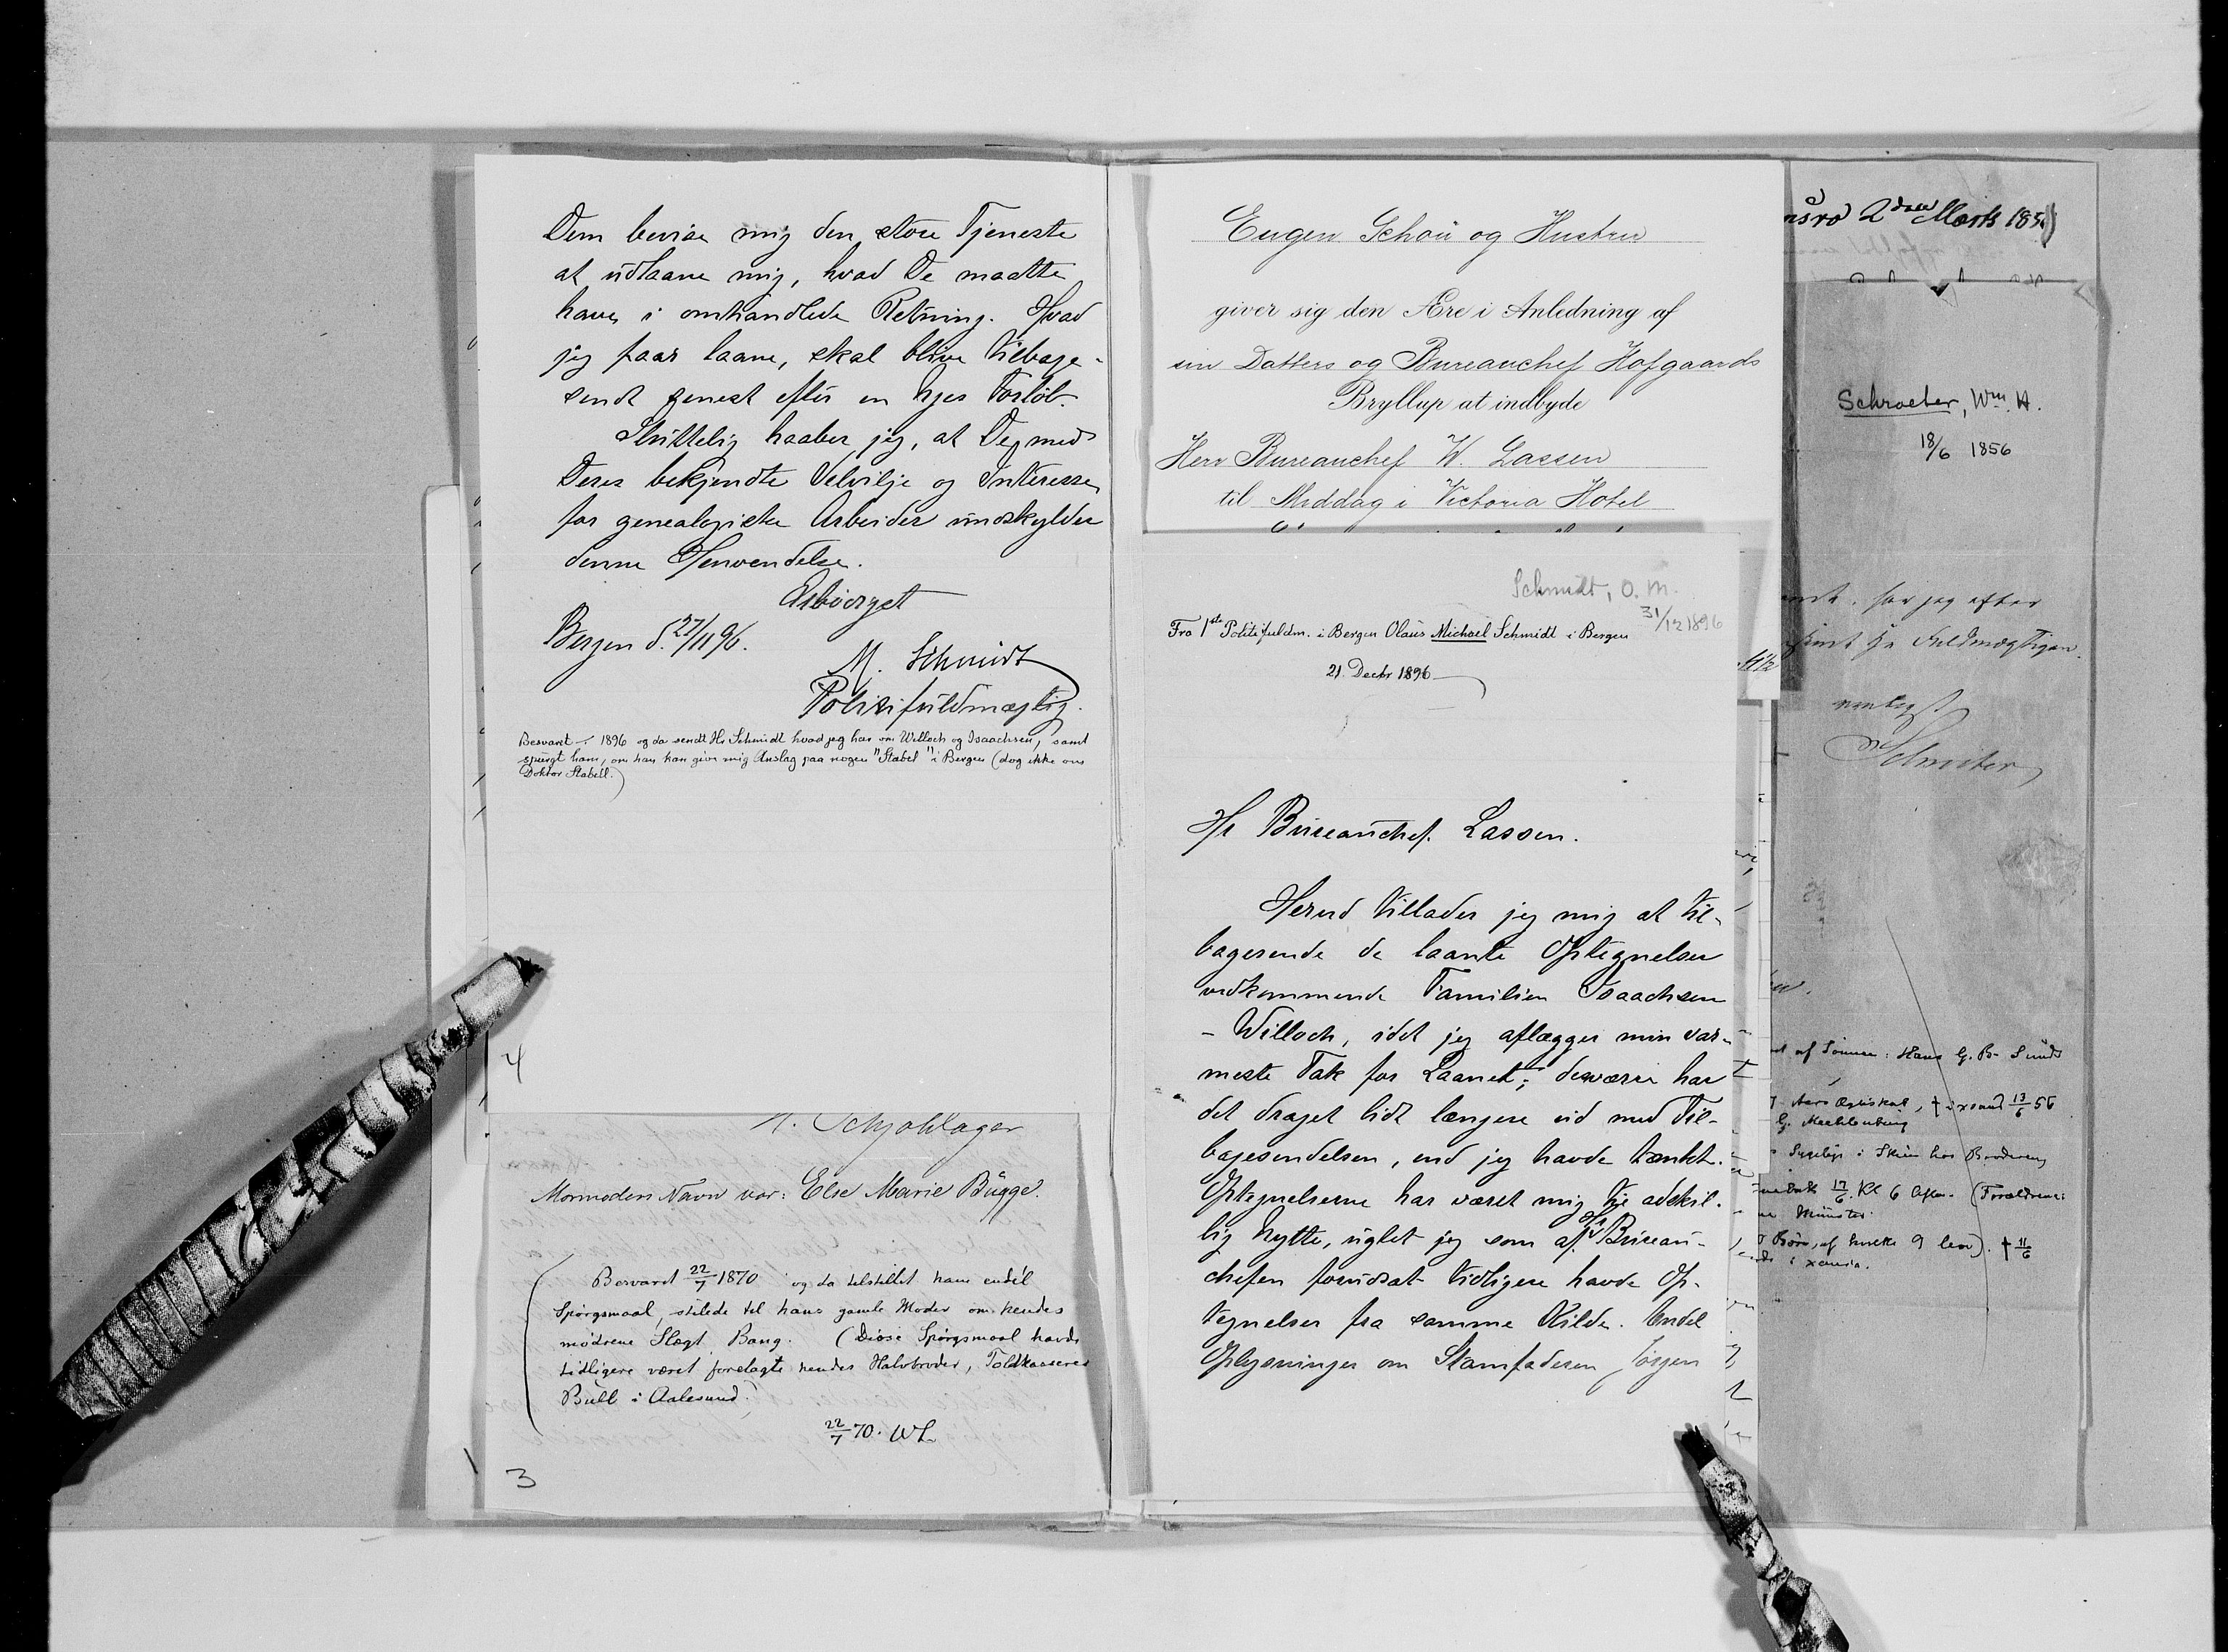 Dem bevise mig den store Tjeneste
at udlaane mig, hvad De maatte
have i omhandlede Retning. Hvad
jeg faar laane, skal blive tilbage-
sendt senest efter en Uges Forløb.
Sluttelig haaber jeg, at De med
Deres bekjendte Velvilje og Interesse
for genealogiske Arbeider undskylder
denne Henvendelse.
Ærbødigst
Bergen d. 27/11 96.
M. Schmidt
Politifuldmægtig.
Besvaret 1896 og da sendt Hr Schmidt hvad jeg har om Willoch og Isaachsen, samt
spurgt ham, om han kan give mig Anslag paa nogen "Stabel" i Bergen (dog ikke om
Doktor Stabell.)
4
N. Schjøhlager
Mormoders Navn var: Else Marie Bügge.
Besvaret 22/7 1870 og da tilstillet ham endel
Spørgsmaal, stilede til hans gamle Moder om hendes
mødrene Slægt Bang. (Disse Spørgsmaal havde
tidligere været forelagte hendes Halvbroder, Toldkasserer
Bull i Aalesund.)
22/7 70. WL.
3
Eugen Schou og Hustru
giver sig den Ære i Anledning af
sin Datters og Bureauchef Hofgaards
Bryllup at indbyde
Herr Bureauchef W. Lassen
til Middag i Victoria Hotel
Schmidt, O. M.
31/12 1896
Fra 1ste Politifuldm. i Bergen Olaus Michael Schmidt i Bergen
21. Decbr 1896
Hr Bureauchef Lassen.
Herved tillader jeg mig at til-
bagesende de laante Optegnelser
vedkommende Familien Isaachsen
- Willoch, idet jeg aflægger min var-
meste Tak for Laanet; desværre har
det draget lidt længere ud med Til-
bagesendelsen, end jeg havde tænkt.
Optegnelserne har været mig til adskil-
lig Nytte, uglet jeg som af Hr Bureau-
chefen forudsat tidligere havde Op-
tegnelser fra samme Kilde. Endel
Oplysninger om Stamfaderen Jørgen
2den Marts 185
Schroeter, Wm. H.
18/6 1856
har jeg efter
Fuldmægtigen.
Schroeter
af Sønnen: Hans G. B. Sunds
Aars Ægteskab, † i xsand 13/6 56
G. Mechlenburg
i Skien hos Broderen
17/6 Kl 6 Efter. (Forældrene:
Münster
Børn, af hvilke 9 lever). † 11/6
i xania.